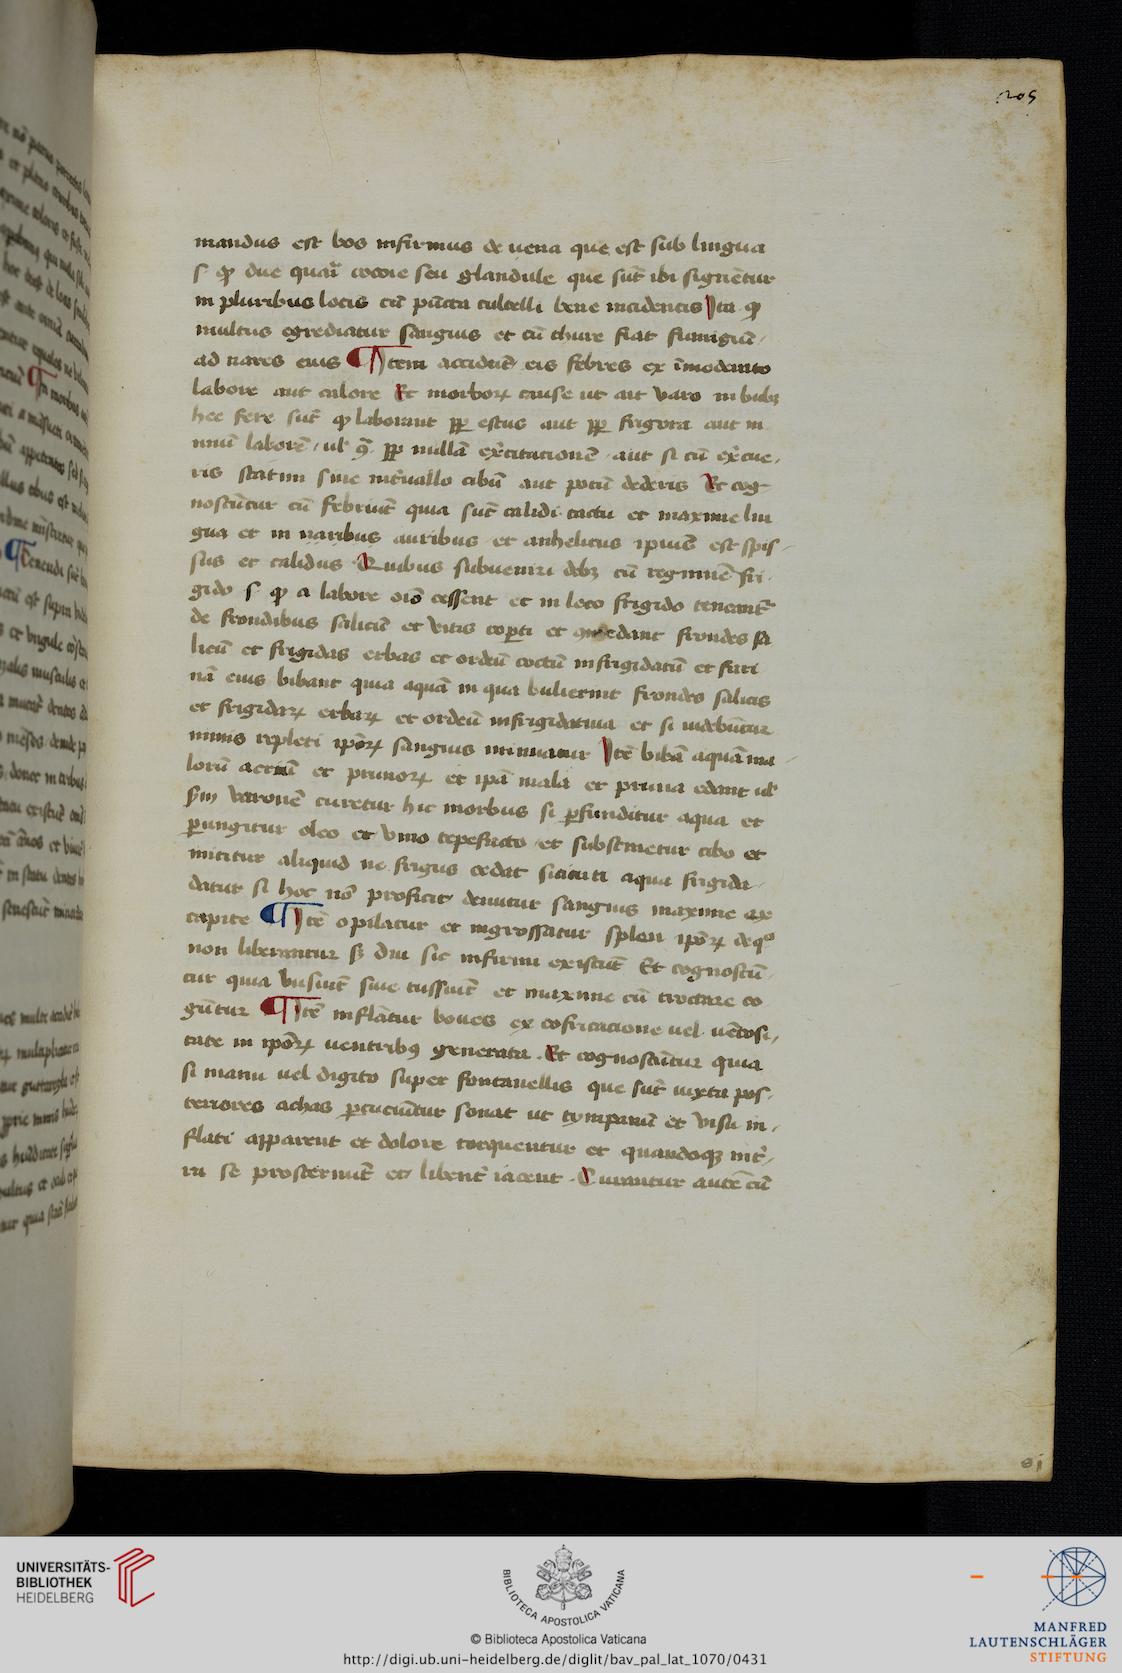 205
mandus est bos infirmus de uena que est sub lingua
s qp due quar̄ cocoie seu glandule que sūt ibi signētur
in pluribus locis cū pūcta cultelli bene incidentis Ita qp
multus egrediatur sanguis et cū thure fiat fumigiū
ad nares eius ¶ Item accidūt eis febres ex īmoderato
labore aut calore Et morborꝝ cause ut ait varo in bubꝫ
hec fere sūt qp laborant pp estus aut pp frigora aut ni
miū laborē / ul' 9ᵃ pp nullā ex̄citacionē aut si cū ex̄cue
ris statim sine int̄uallo cibū aut potū dederis Et cog
noscūtur cū febriūt quia sūt calidi tactu et maxime lin
gua et in naribus auribus et anhelitus ipius est spis
sus et calidus Quibus subueniri debꝫ cū regimine fri
gido s qp a labore oīo cessent et in loco frigido teneant
de frondibus salicū et vitis cop̄ti et edant frondes sa
licū et frigidas erbas et ordeū coctū infrigidatū et fari
nā eius bibant quia aquā in qua bulierint frondes salicis
et frigidarꝝ erbarꝝ et ordeū infrigidatiua et si uidebūtur
nimis repleti ipōrꝝ sanguis minuatur Itē bibāt aquā ma
lorū acrium et prunorꝝ et ipā mala et pruna edant ul'
sm varonē curetur hic morbus si p̄funditur aqua et
p̄ungitur oleo et vino tepefacto et substinetur cibo et
inicitur aliquid ne frigus cedat sicienti aqua frigida
datur si hoc nō proficit demitur sanguis maxime ex
capite ¶ Itē opilatur et ingrossatur splen ipōrꝝ de qº
non liberantur sꝫ diu sic infirmi existūt Et cognoscū
tur quia tussiūt et maxime cū troctare co
gūtur ¶ Itē inflātur boues ex cōfricacione uel uētosi
tate in ipōrꝝ uentribꝰ generata . Et cognoscūtur quia
si manu uel digito super fontanellis que sūt iuxta pos
teriores achas p̄cuciūtur sonat ut tympanū et visu in
flati apparent et dolore torquentur et quandoqꝫ int̄
ra sē prosternūt et libent̄ iacent . Curantur autē cū
81
UNIVERSITÄTS-
BIBLIOTHEK
HEIDELBERG
BIBLIOTECA APOSTOLICA VATICANA
© Biblioteca Apostolica Vaticana
http://digi.ub.uni-heidelberg.de/diglit/bav_pal_lat_1070/0431
MANFRED
LAUTENSCHLÄGER
STIFTUNG